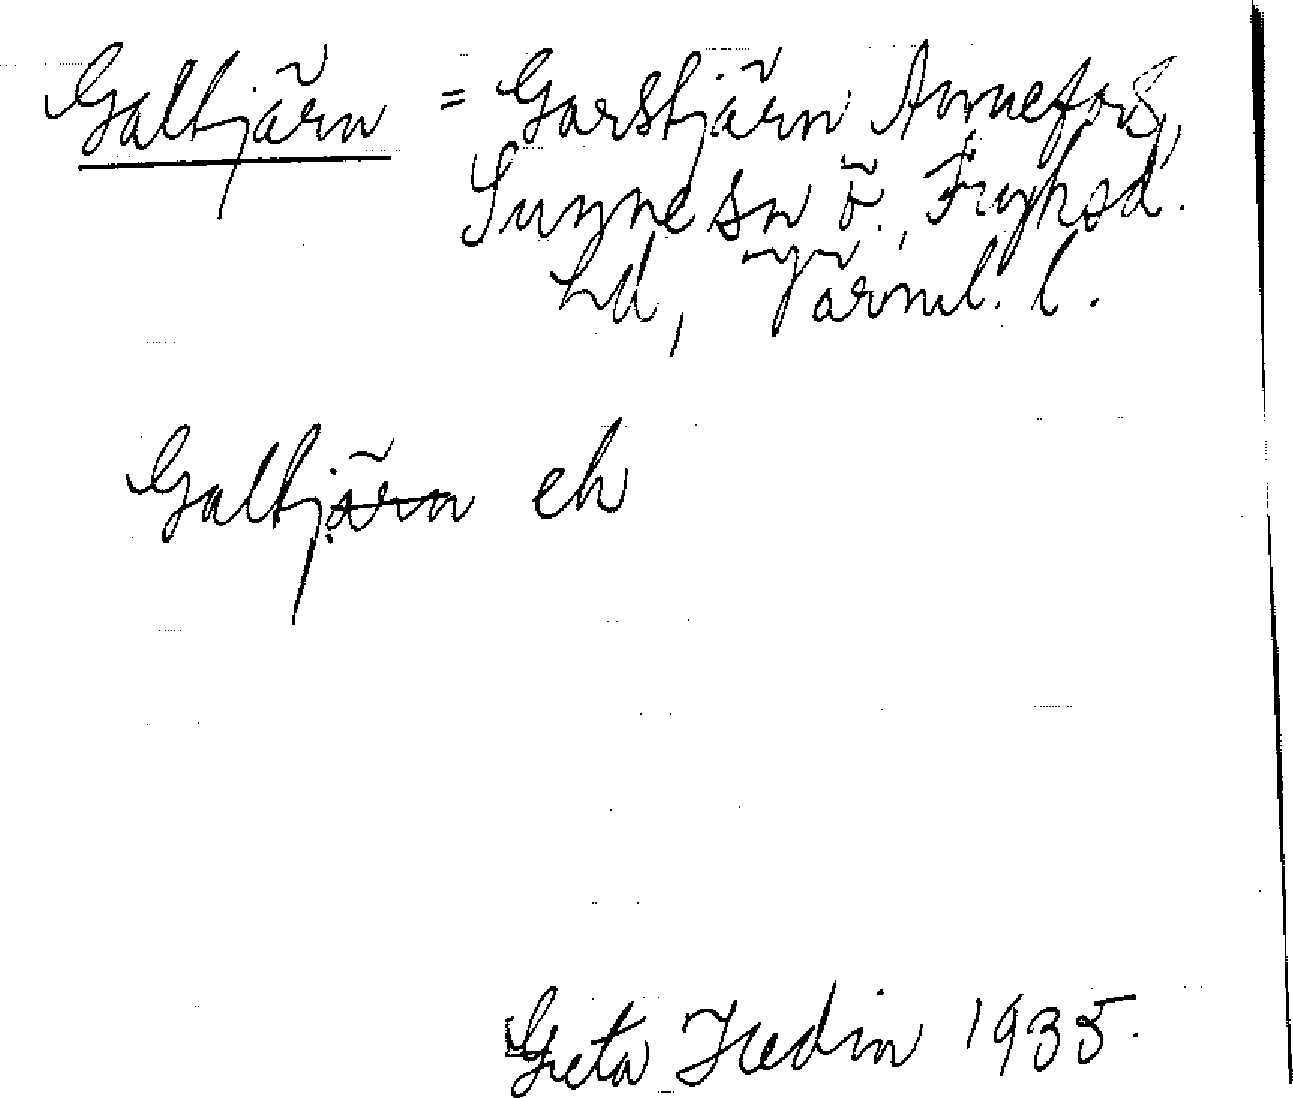 Galtjärn = Garstjärn Annefors,
Sunne sn ö., Fryksd.
hd, Värml. l.
Galtjärn ek
Greta Hedin 1935.